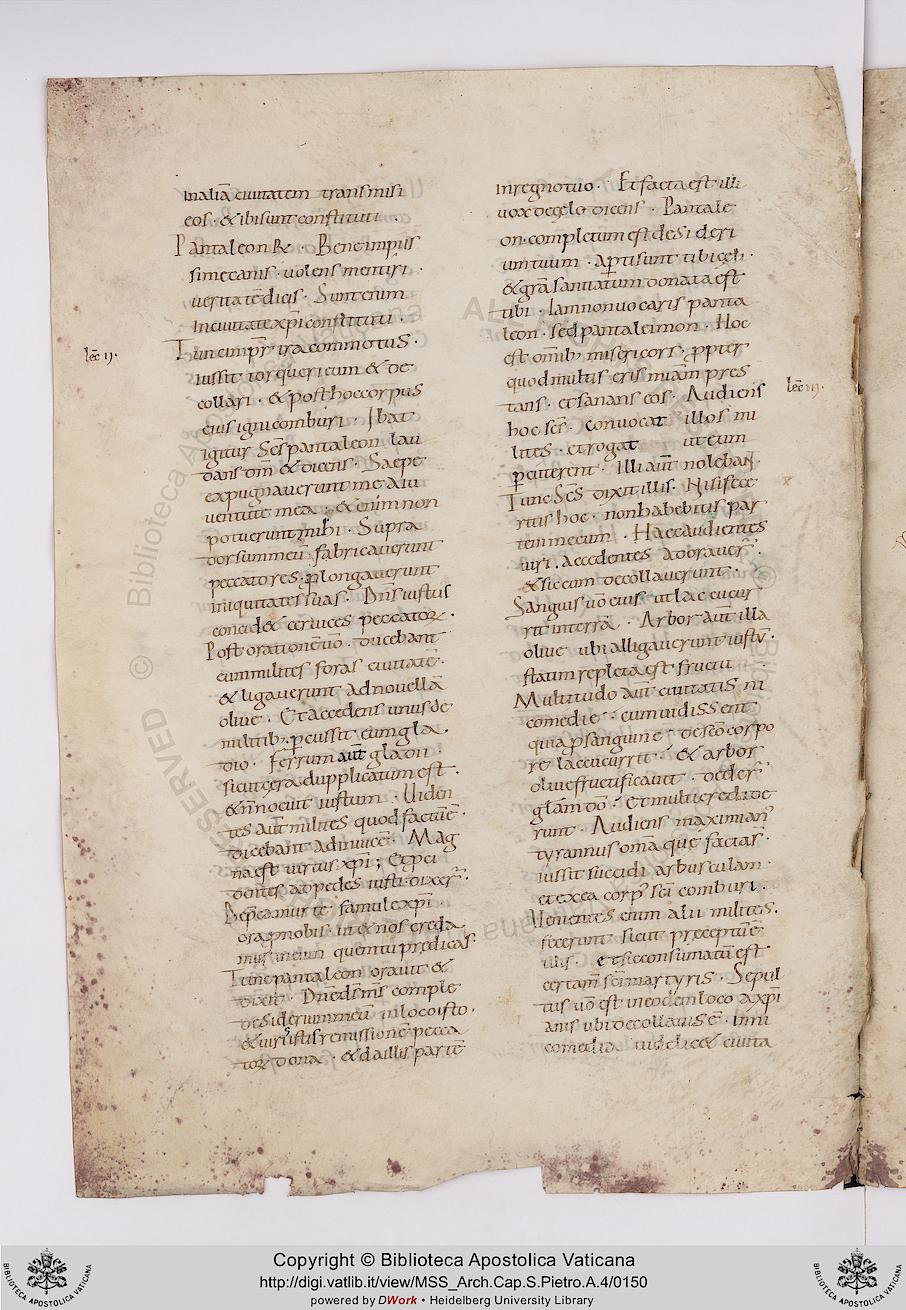 lec̄ ıı·
inaliā ciuitatem transmisi
eos · & ibi sunt constituti ·
Pantaleon R& · Bene impius
simecanis · uolens mentiri ·
ueritatē dicis · Sunt enim
In ciuitate xp̄i constituti ·
Tunc imp̄r ira commotus ·
iussit torqueri eum & de
collari · & post hoc corpus
eius igni comburi · Ibat
igitur Sc̄s pantaleon lau
dans dm̄ & dicens · Saepe
expugnauerunt me a iu
uentute mea ; & enim non
potuerunt mihi · Supra
dorsum meū fabricauerunt
peccatores · plongauerunt
iniquitates suas · Dn̄s iustus
concid& ceruices peccatoꝝ ·
Post orationē uō · ducebant
eum milites foras ciuitatē ·
& ligauerunt ad nouellā
oliue · Et accedens unus de
militib; percussit eum gla
dio · ferrum aūt gladii ·
sicut cera dupplicatum est ·
& n̄ nocuit iustum · Uiden
tes aūt milites quod factū ē ·
dicebant adinuicē · Mag
na est uirtus xp̄i ; Et p̄ci
dentes ad pedes iusti · dixer̄ ·
Depcamur te famule xp̄i ·
ora p nobis · ut & nos creda
mus in eum quem tu predicas ·
Tunc pantaleon orauit &
dixit · Dn̄e ds̄ ms̄ comple
desiderium meū in loco isto ·
& uiris istis remissionē pecca
toꝝ dona · & da illis partē
in regno tuo · Et facta est illi
uox de celo dicens · Pantale
on · completum est desideri
um tuum · aperti sunt tibi celi ·
& gr̄a sanitatum donata est
tibi · Iam non uocaris panta
leon · sed pantaleimon · Hoc
est omīb; misericors · propter
quod multis eris miām pres
tans · et sanans eos · Audiens
lec̄ ııı·
hoc sc̄s · conuocat illos mi
lites · et rogat ut eum
peruterent · Illi aūt nolebant ·
Tunc Sc̄s dixit illis · Nisi fece
ritis hoc · non habebitis par
tem mecum · Haec audientes
uiri · accedentes adorauer̄ ·
& sic eum decollauerunt ·
Sanguis uō eius ut lac cucur
rit in terrā · Arbor aūt illa
oliue ubi alligauerunt iustū ·
statim repleta est fructu ·
Multitudo aūt ciuitatis ni
comedie · cum uidissent
quia p sanguine · de sc̄o corpo
re lac cucurrit · & arbor
oliue fructificauit · deder̄
gl̄am dō · Et multi credide
runt · Audiens maximian̄
tyrannus om̄a quę facta s̄ ·
iussit succidi arbusculam ·
et ex ea corp̄ sc̄i comburi ·
Uenientes eium alii milites ·
fecerunt sicut preceptū ē
illis · et sic consumatū est
certam̄ sc̄i martyris · Sepul
tus uō est in eodem loco a xp̄i
anis ubi decollatus ē · In ni
comedia uidelic& ciuita
Copyright © Biblioteca Apostolica Vaticana
http://digi.vatlib.it/view/MSS_Arch.Cap.S.Pietro.A.4/0150
powered by DWork • Heidelberg University Library
BIBLIOTECA APOSTOLICA VATICANA
BIBLIOTECA APOSTOLICA VATICANA